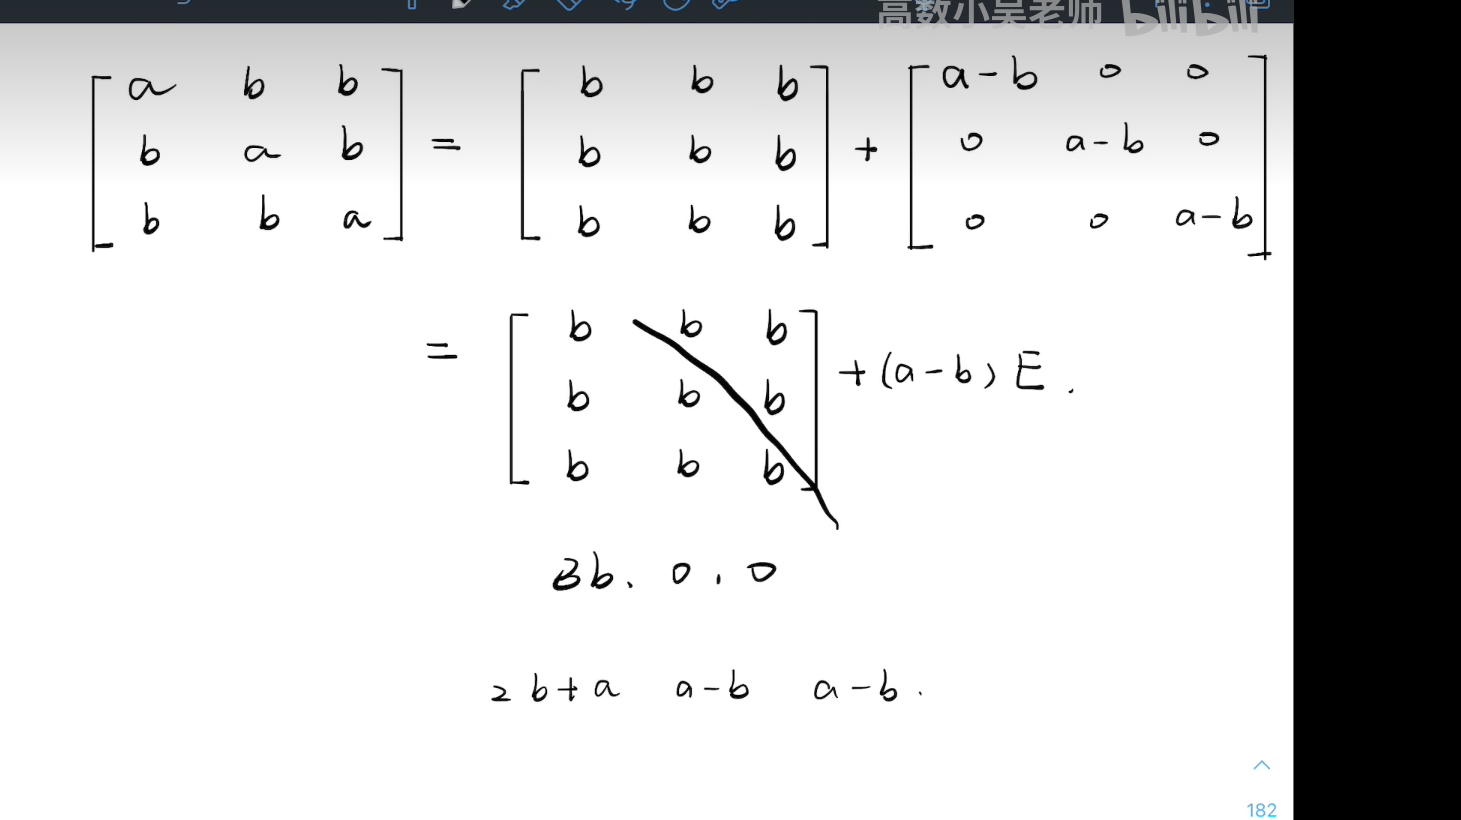 高数小吴老师 bilibili
[ a b b ] = [ b b b ] + [ a-b 0 0 ]
[ b a b ] [ b b b ] [ 0 a-b 0 ]
[ b b a ] [ b b b ] [ 0 0 a-b ]
= [ b b b ] + (a-b) E .
[ b b b ]
[ b b b ]
3b. 0. 0
2b+a a-b a-b.
182